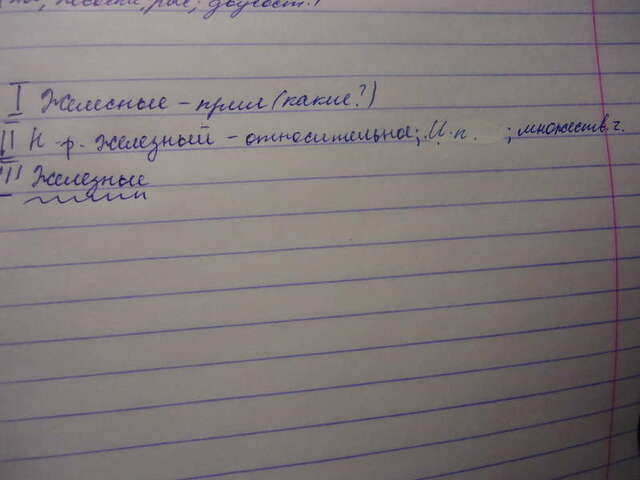 I Железные – прил (какие?)
II Н.-р. железный – относительное; И.п. ; множеств. ч.
III Железные